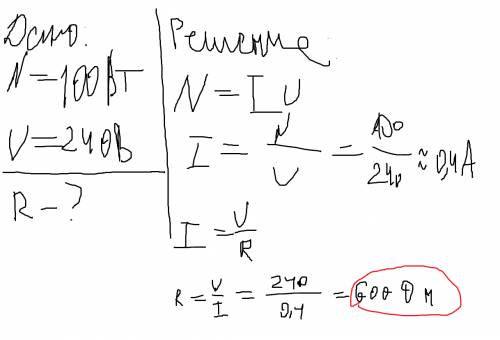 Дано:
N=100Вт
U=240В
R-?
Решение
N=IU
I = N/U = 100/240 ≈ 0,4А
I = U/R
R = U/I = 240/0,4 = 600 Ом